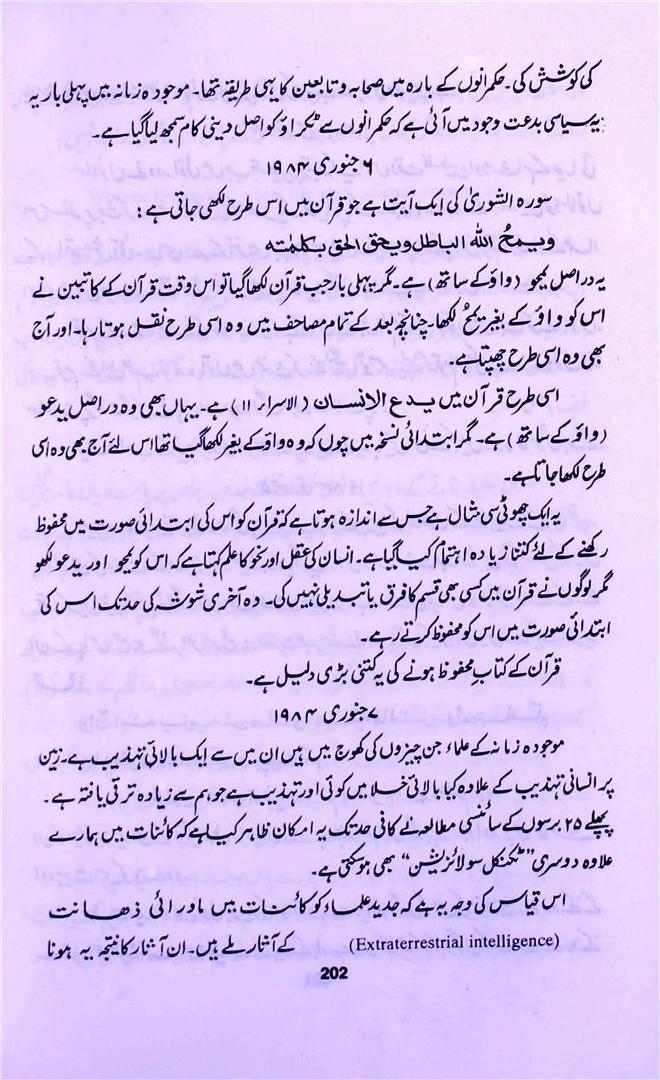 کی کوشش کی۔ حکمرانوں کے بارہ میں صحابہ و تابعین کا یہی طریقہ تھا۔ موجودہ زمانہ میں پہلی بار یہ
نیہ سیاسی بدعت وجود میں آئی ہے کہ حکمرانوں سے ٹکراؤ کو اصل دینی کام سمجھ لیا گیا ہے۔
۶ جنوری ۱۹۸۴
سورہ الشوریٰ کی ایک آیت ہے جو قرآن میں اس طرح لکھی جاتی ہے :
ویمحُ اللہ الباطل ویحق الحق بکلمتہ
یہ دراصل یمحو (واؤ کے ساتھ) ہے۔ مگر پہلی بار جب قرآن لکھا گیا تو اس وقت قرآن کے کاتبین نے
اس کو واؤ کے بغیر یمحُ لکھا۔ چنانچہ بعد کے تمام مصاحف میں وہ اسی طرح نقل ہوتا رہا۔ اور آج
بھی وہ اسی طرح چھپتا ہے۔
اسی طرح قرآن میں یدع الانسان (الاسراء ۱۱) ہے۔ یہاں بھی وہ دراصل یدعو
(واؤ کے ساتھ) ہے۔ مگر ابتدائی نسخہ میں چوں کہ وہ واؤ کے بغیر لکھا گیا تھا اس لئے آج بھی وہ اسی
طرح لکھا جاتا ہے۔
یہ ایک چھوٹی سی مثال ہے جس سے اندازہ ہوتا ہے کہ قرآن کو اس کی ابتدائی صورت میں محفوظ
رکھنے کے لئے کتنا زیادہ اہتمام کیا گیا ہے۔ انسان کی عقل اور نحو کا علم کہتا ہے کہ اس کو یمحو اور یدعو لکھو
مگر لوگوں نے قرآن میں کسی بھی قسم کا فرق یا تبدیلی نہیں کی۔ وہ آخری شوشہ کی حد تک اس کی
ابتدائی صورت میں اس کو محفوظ کرتے رہے۔
قرآن کے کتابِ محفوظ ہونے کی یہ کتنی بڑی دلیل ہے۔
۷ جنوری ۱۹۸۴
موجودہ زمانہ کے علماء جن چیزوں کی کھوج میں ہیں ان میں سے ایک بالائی تہذیب ہے۔ زمین
پر انسانی تہذیب کے علاوہ کیا بالائی خلا میں کوئی اور تہذیب ہے جو ہم سے زیادہ ترقی یافتہ ہے۔
پچھلے ۲۵ برسوں کے سائنسی مطالعہ نے کافی حد تک یہ امکان ظاہر کیا ہے کہ کائنات میں ہمارے
علاوہ دوسری "ٹکنکل سولائزیشن" بھی ہو سکتی ہے۔
اس قیاس کی وجہ یہ ہے کہ جدید علماء کو کائنات میں ماورائی ذھانت
(Extraterrestrial intelligence) کے آثار ملے ہیں۔ ان آثار کا نتیجہ یہ ہونا
202